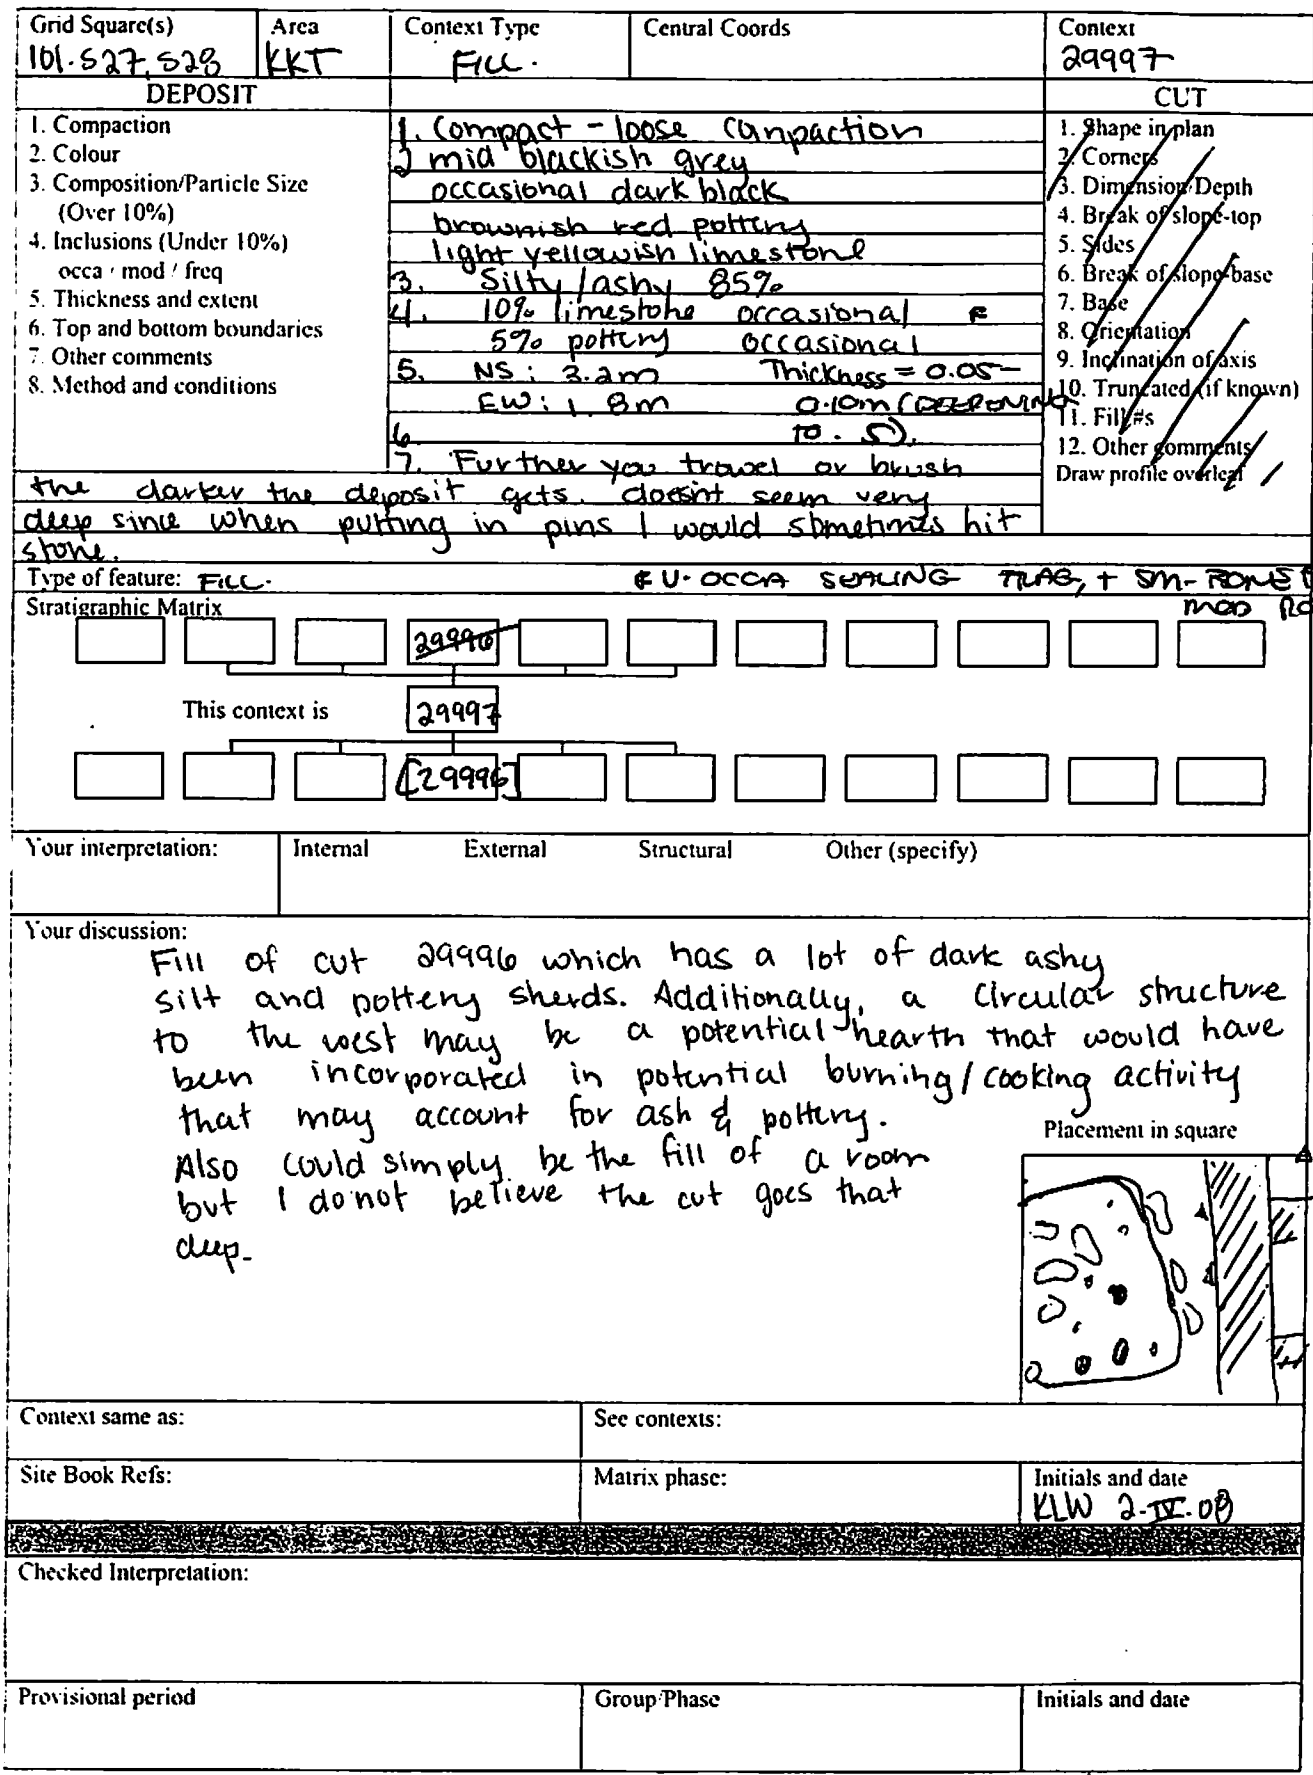 Grid Square(s) Area Context Type Central Coords Context
101.S27, S28 KKT FILL. 29997
DEPOSIT CUT
1. Compaction
2. Colour
3. Composition/Particle Size
(Over 10%)
4. Inclusions (Under 10%)
occa / mod / freq
5. Thickness and extent
6. Top and bottom boundaries
7. Other comments
8. Method and conditions
1. Compact - loose canpaction
2 mid blackish grey
occasional dark black
brownish red pottery
light yellowish limestone
3. Silty/ashy 85%
4. 10% limestone occasional
5% pottery occasional
5. NS: 3.2m Thickness = 0.05-
EW: 1.8m 0.10m (DEEPENING
6 TO. S).
7. Further you trowel or brush
the darker the deposit gets. doesn't seem very
deep since when putting in pins I would sometimes hit
stone.
1. Shape in plan
2. Corners
3. Dimension/Depth
4. Break of slope-top
5. Sides
6. Break of slope-base
7. Base
8. Orientation
9. Inclination of axis
10. Truncated (if known)
11. Fill #s
12. Other comments
Draw profile overleaf
Type of feature: FILL. OCCA SEALING FRAG, + SM-
MOD
Stratigraphic Matrix
29996
This context is 29997
[29996]
Your interpretation: Internal External Structural Other (specify)
Your discussion:
Fill of cut 29996 which has a lot of dark ashy
silt and pottery sherds. Additionally, a circular structure
to the west may be a potential hearth that would have
been incorporated in potential burning/cooking activity
that may account for ash & pottery.
Also could simply be the fill of a room
but I do not believe the cut goes that
deep.
Placement in square
Context same as: See contexts:
Site Book Refs: Matrix phase: Initials and date
KLW 2-IV-08
Checked Interpretation:
Provisional period Group/Phase Initials and date